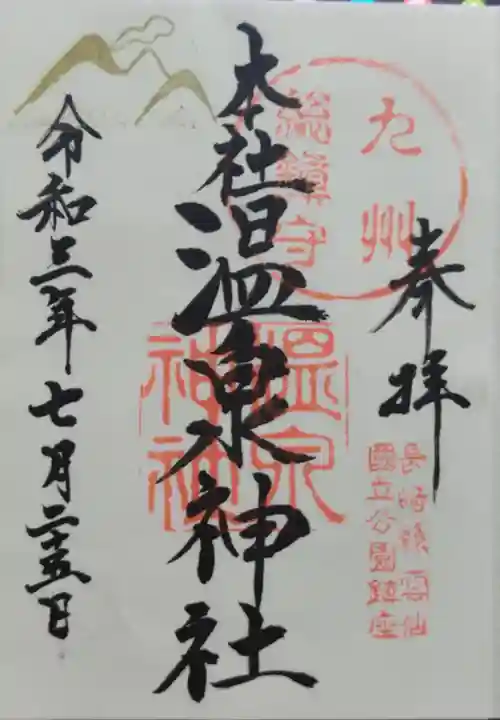 奉拝
九州
総鎮守
長崎県雲仙
國立公園鎮座
本社温泉神社
温泉
神社
令和三年七月二十五日